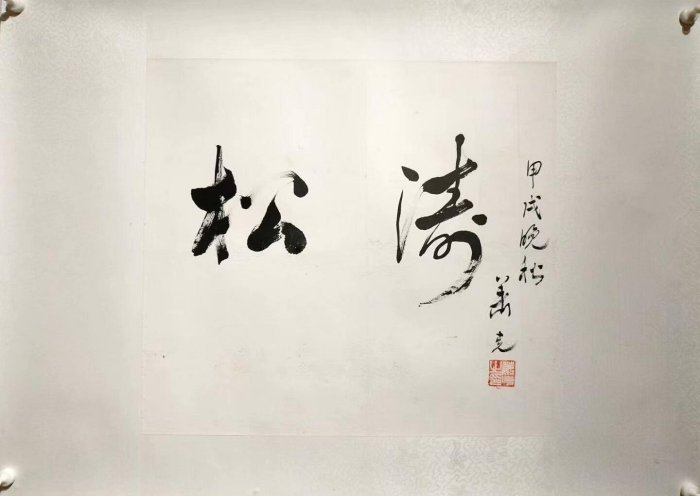 松涛
甲戌晚秋
萧克